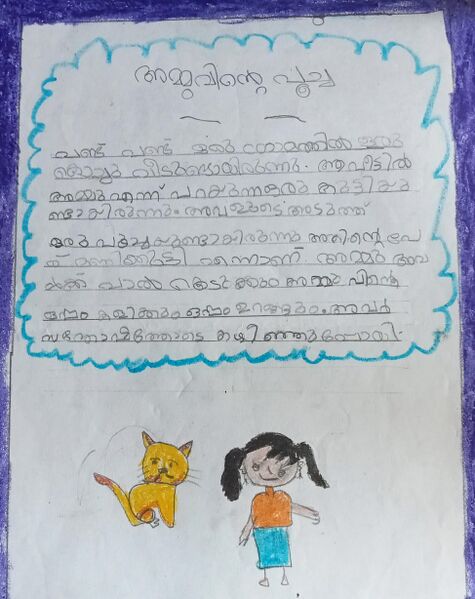 അമ്മുവിന്റെ പൂച്ച
പണ്ട് പണ്ട് ഒരു ഗ്രാമത്തിൽ ഒരു
കൊച്ചു വീടുണ്ടായിരുന്നു. ആ വീട്ടിൽ
അമ്മു എന്ന് പറയുന്നഒരു കുട്ടിയു
ണ്ടായിരുന്നു. അവളുടെ അടുത്ത്
ഒരു പൂച്ചയുണ്ടായിരുന്നു അതിന്റെ പേ
ര് മണിക്കുട്ടി എന്നാണ്. അമ്മു അവ
ൾക്ക് പാൽ കൊടുക്കും അമ്മുവിന്റെ
ഒപ്പം കളിക്കും ഒപ്പം ഉറങ്ങും. അവർ
സന്തോഷത്തോടെ കഴിഞ്ഞുപോയി.